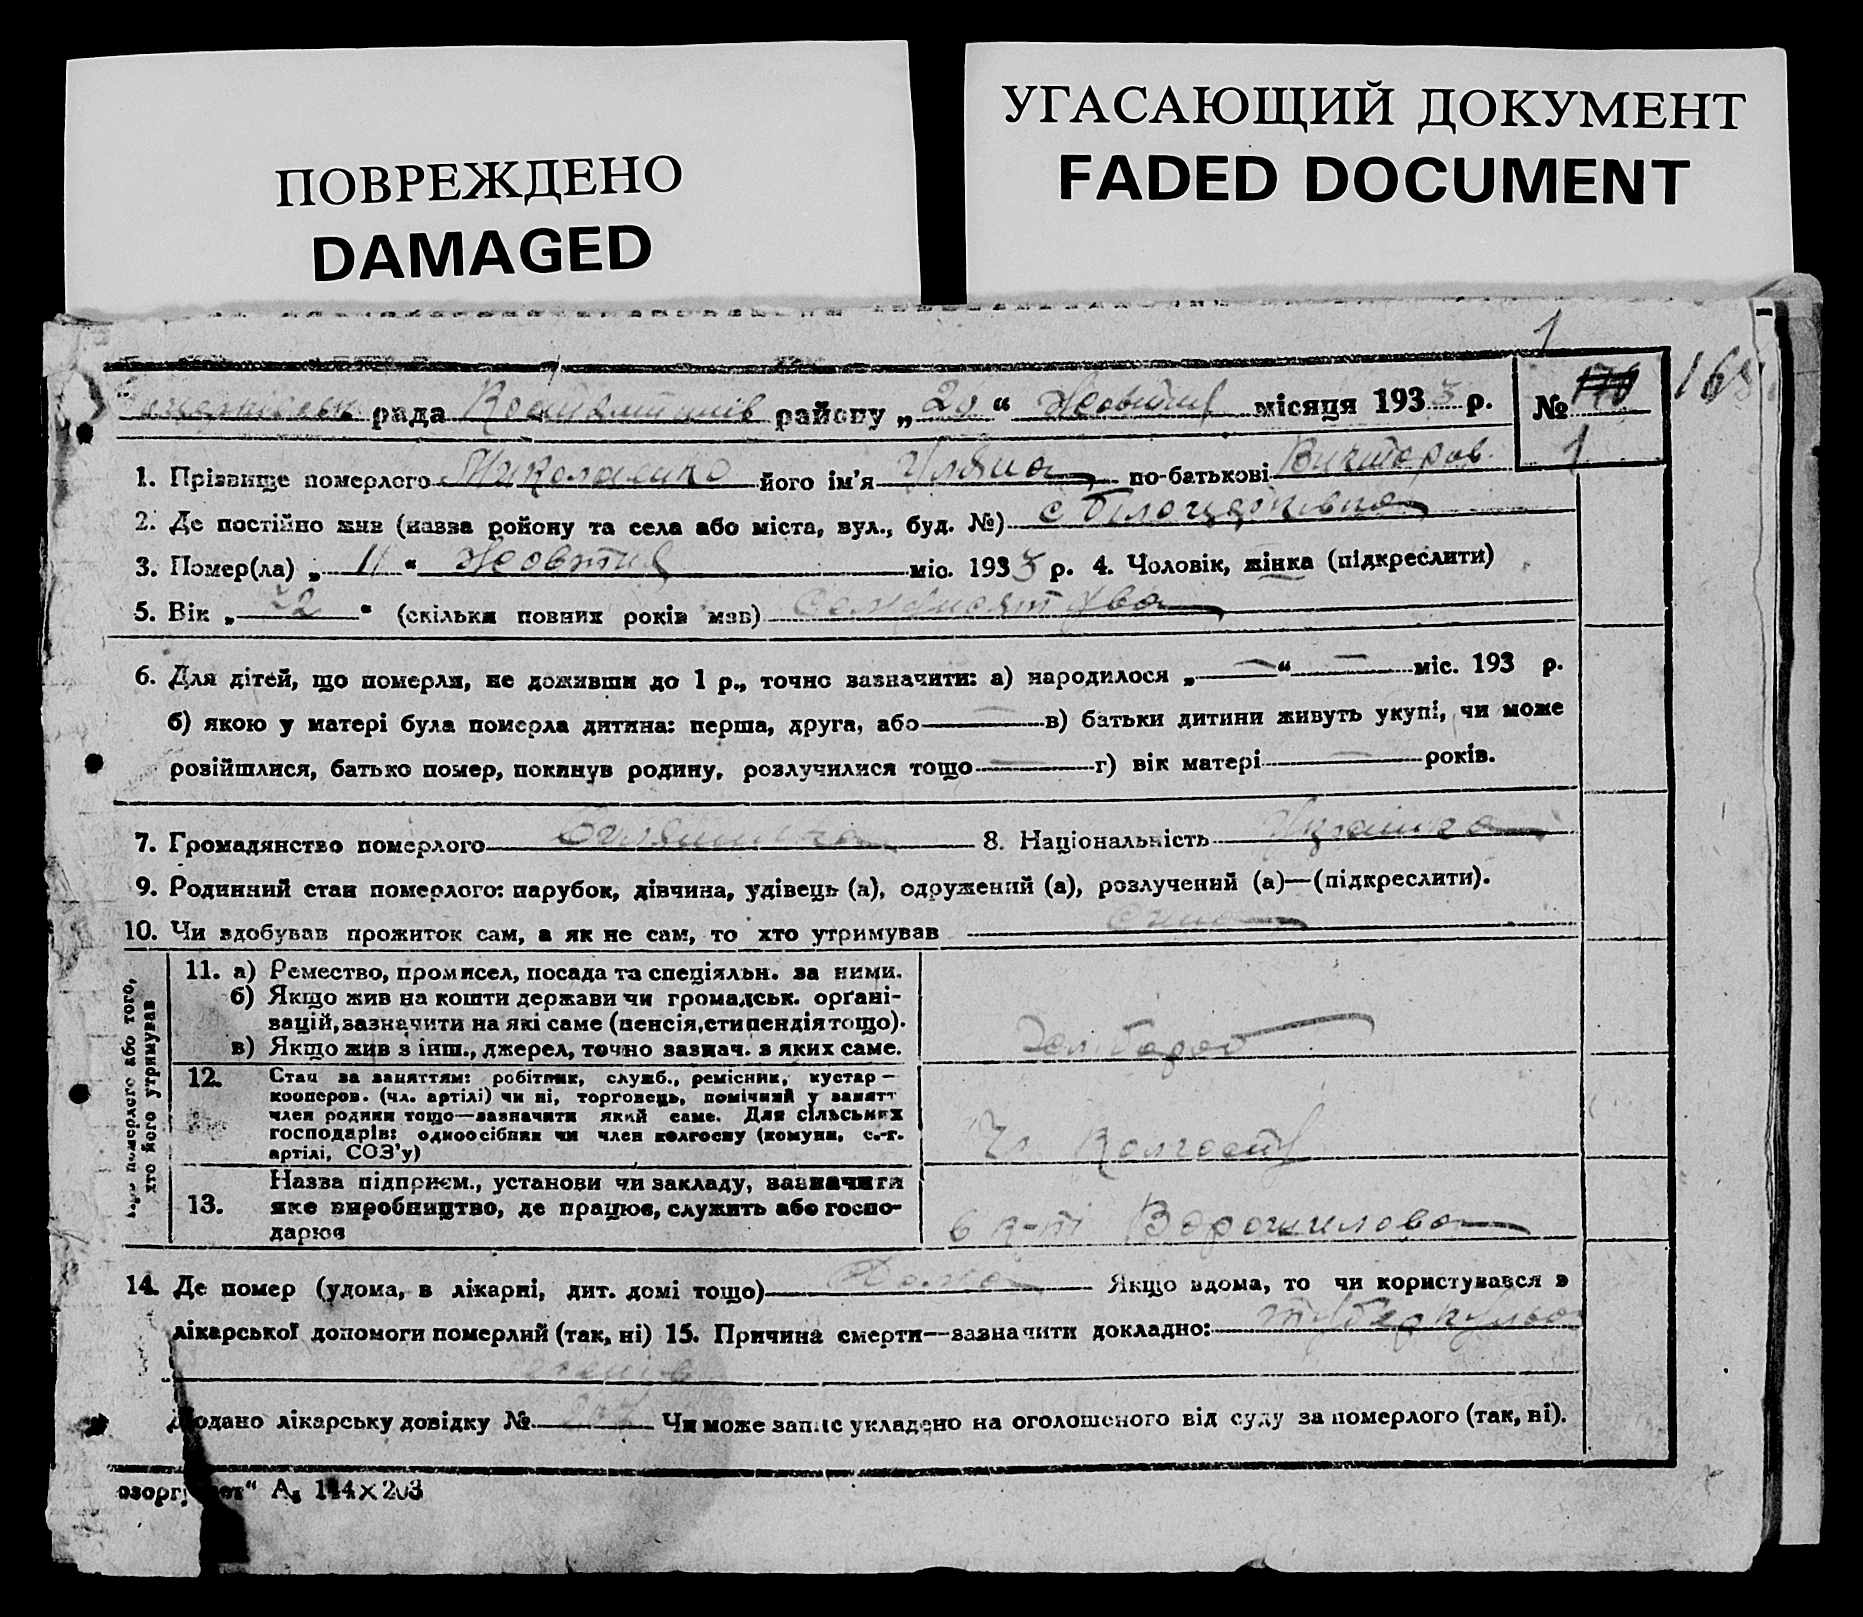 ПОВРЕЖДЕНО
DAMAGED
УГАСАЮЩИЙ ДОКУМЕНТ
FADED DOCUMENT
1
рада районy „20“ Жовтня місяця 1933 р. № 170 163
1
1. Прізвище померлого Николаенко його ім'я Уляна по-батькові Виктором.
2. Де постійно жив (назва ройону та села або міста, вул., буд. №) с Білоцерковка
3. Помер(ла) „11“ Жовтня міс. 1933 р. 4. Чоловік, жінка (підкреслити)
5. Вік „72“ (скільки повних років мав) семдисят два
6. Для дітей, що померли, не доживши до 1 р., точно зазначити: а) народилося „—“ — міс. 193 р.
б) якою у матері була померла дитина: перша, друга, або — в) батьки дитини живуть укупі, чи може
розійшлися, батько помер, покинув родину, розлучилися тощо — г) вік матері — років.
7. Громадянство померлого 8. Національність Українка
9. Родинний стан померлого: парубок, дівчина, удівець (а), одружений (а), розлучений (а)—(підкреслити).
10. Чи здобував прожиток сам, а як не сам, то хто утримував сина
померлого або того,
хто його утримував
11. а) Ремество, промисел, посада та спеціяльн. за ними.
б) Якщо жив на кошти держави чи громадськ. орґані-
зацій, зазначити на які саме (пенсія, стипендія тощо).
в) Якщо жив з інш., джерел, точно зазнач. з яких саме.
Хлібороб
12. Стан за заняттям: робітник, служб., ремісник, кустар—
кооперов. (чл. артілі) чи ні, торговець, помічний у занятт
член родини тощо—зазначити який саме. Для сільських
господарів: одноосібник чи член колгоспу (комуни, с.-г.
артілі, СОЗ'у)
Чл Колгоспу
13. Назва підприєм., установи чи закладу, зазначити
яке виробництво, де працює, служить або госпо-
дарює
в к-пі Ворошилова
14. Де помер (удома, в лікарні, дит. домі тощо) Дома Якщо вдома, то чи користувався з
лікарської допомоги померлий (так, ні) 15. Причина смерти—зазначити докладно: туберкульоз
Додано лікарську довідку № Чи може запис укладено на оголошеного від суду за померлого (так, ні).
А₅ 144×203